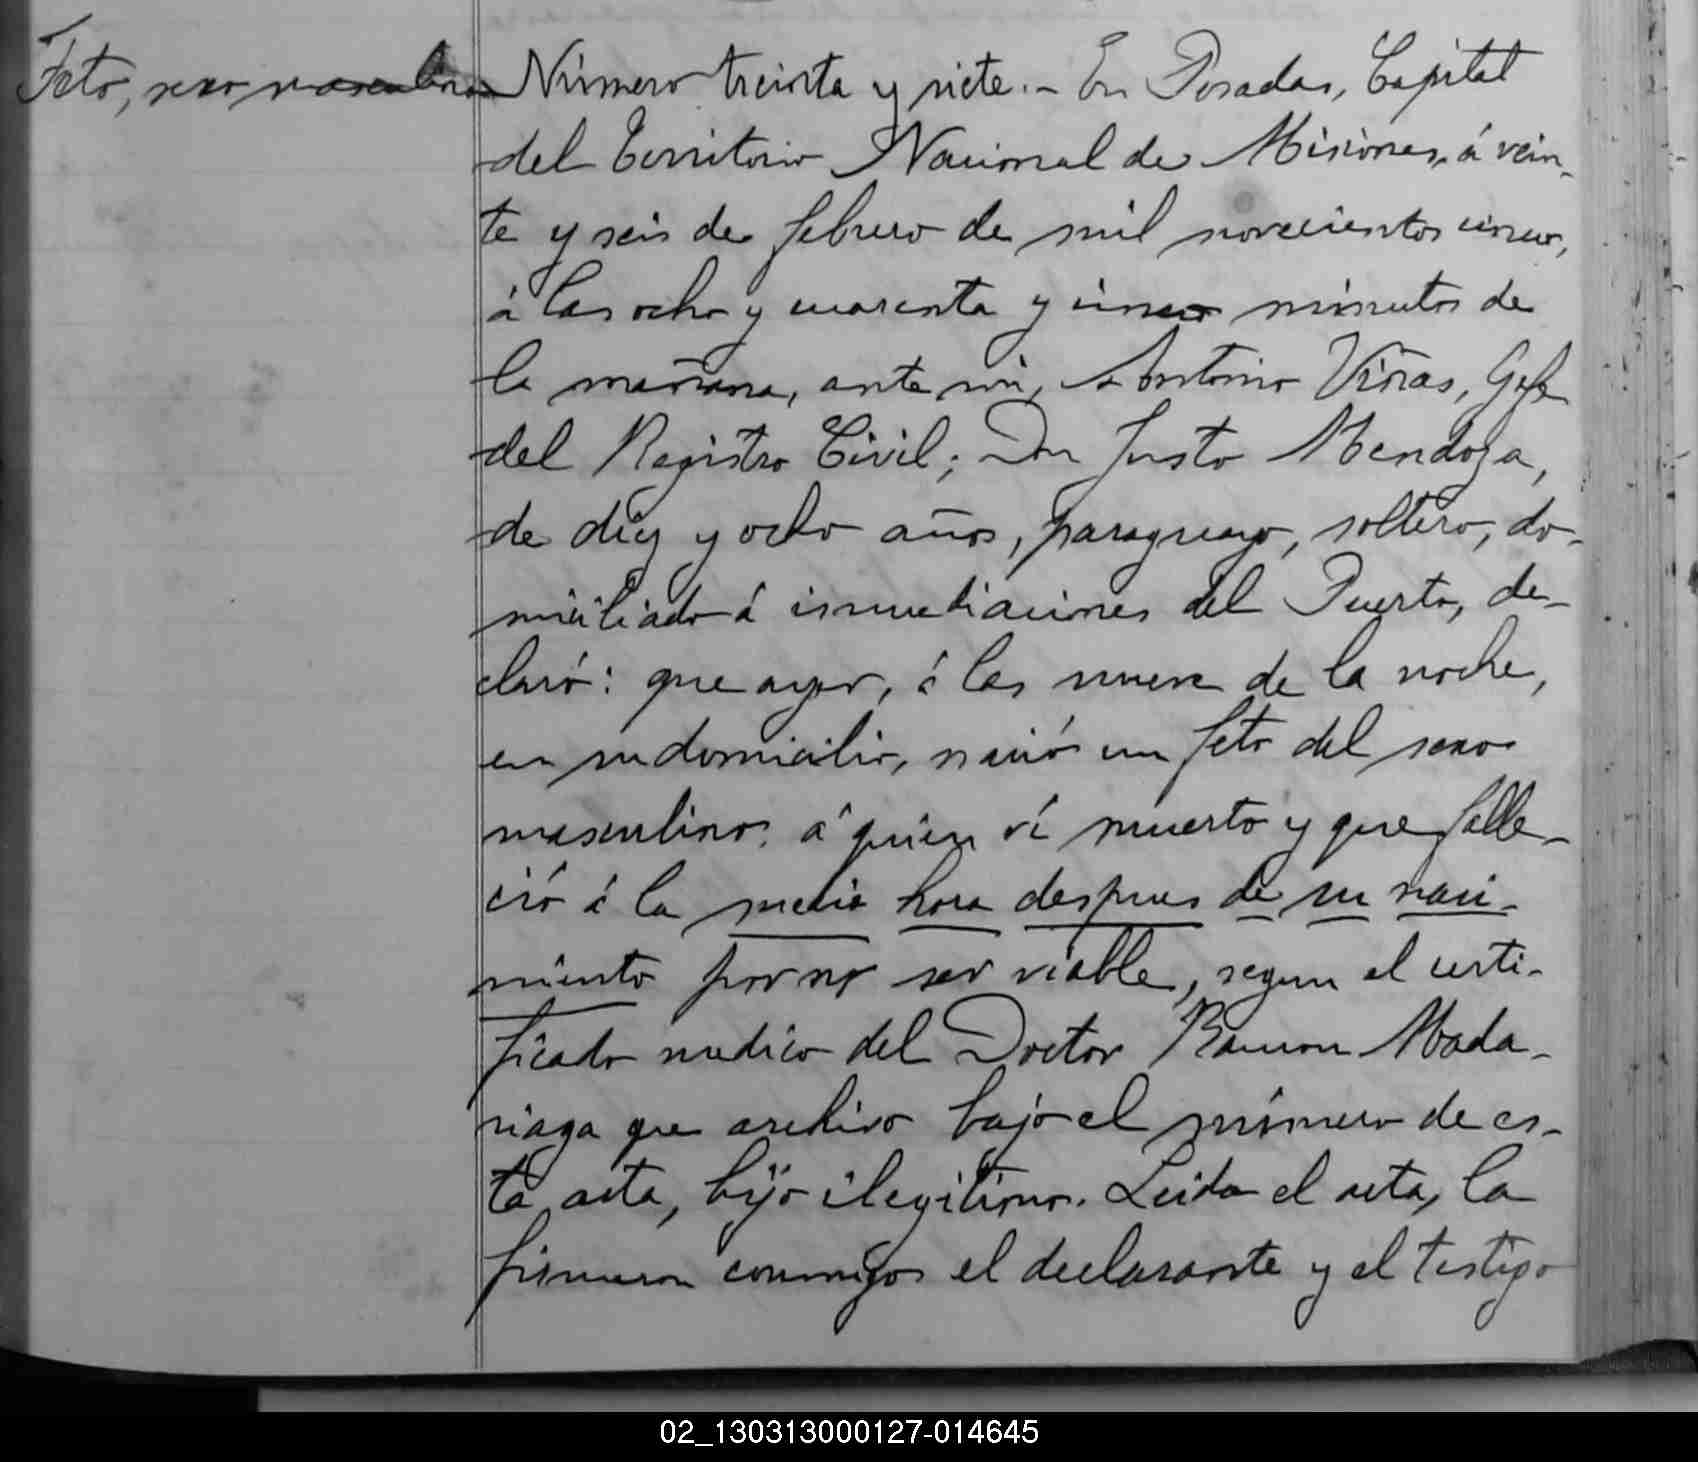 Feto, sexo masculino
Número treinta y siete.- En Posadas, Capital
del Territorio Nacional de Misiones, á vein-
te y seis de febrero de mil novecientos cinco,
á las ocho y cuarenta y cinco minutos de
la mañana, ante mi, Antonio Viñas, Gefe
del Registro Civil; Don Justo Mendoza,
de diez y ocho años, paraguayo, soltero, do-
miciliado á inmediaciones del Puerto, de-
claró: que ayer, á las nueve de la noche,
en su domicilio, nació un feto del sexo
masculino; á quien ví muerto y que falle-
ció á la media hora despues de su naci-
miento por no ser viable, segun el certi-
ficado medico del Doctor Ramon Mada-
riaga que archivo bajo el número de es-
ta acta, hijo ilegitimo. Leida el acta, la
firmaron conmigo el declarante y el testigo
02_130313000127-014645